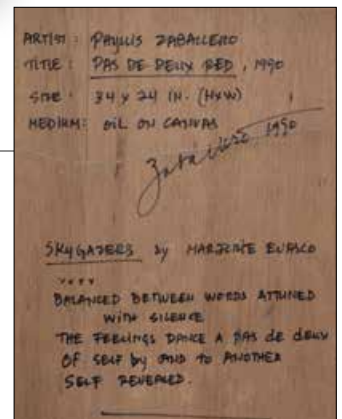 ARTIST : PHYLLIS ZABALLERO
TITLE : PAS DE DEUX RED, 1990
SIZE : 34 x 24 IN. (HxW)
MEDIUM: OIL ON CANVAS
Zaballero 1990
SKYGAZERS by MARJORIE EVASCO
....
BALANCED BETWEEN WORDS ATTUNED
WITH SILENCE
THE FEELINGS DANCE A PAS de deux
OF SELF by AND TO ANOTHER
SELF REVEALED.